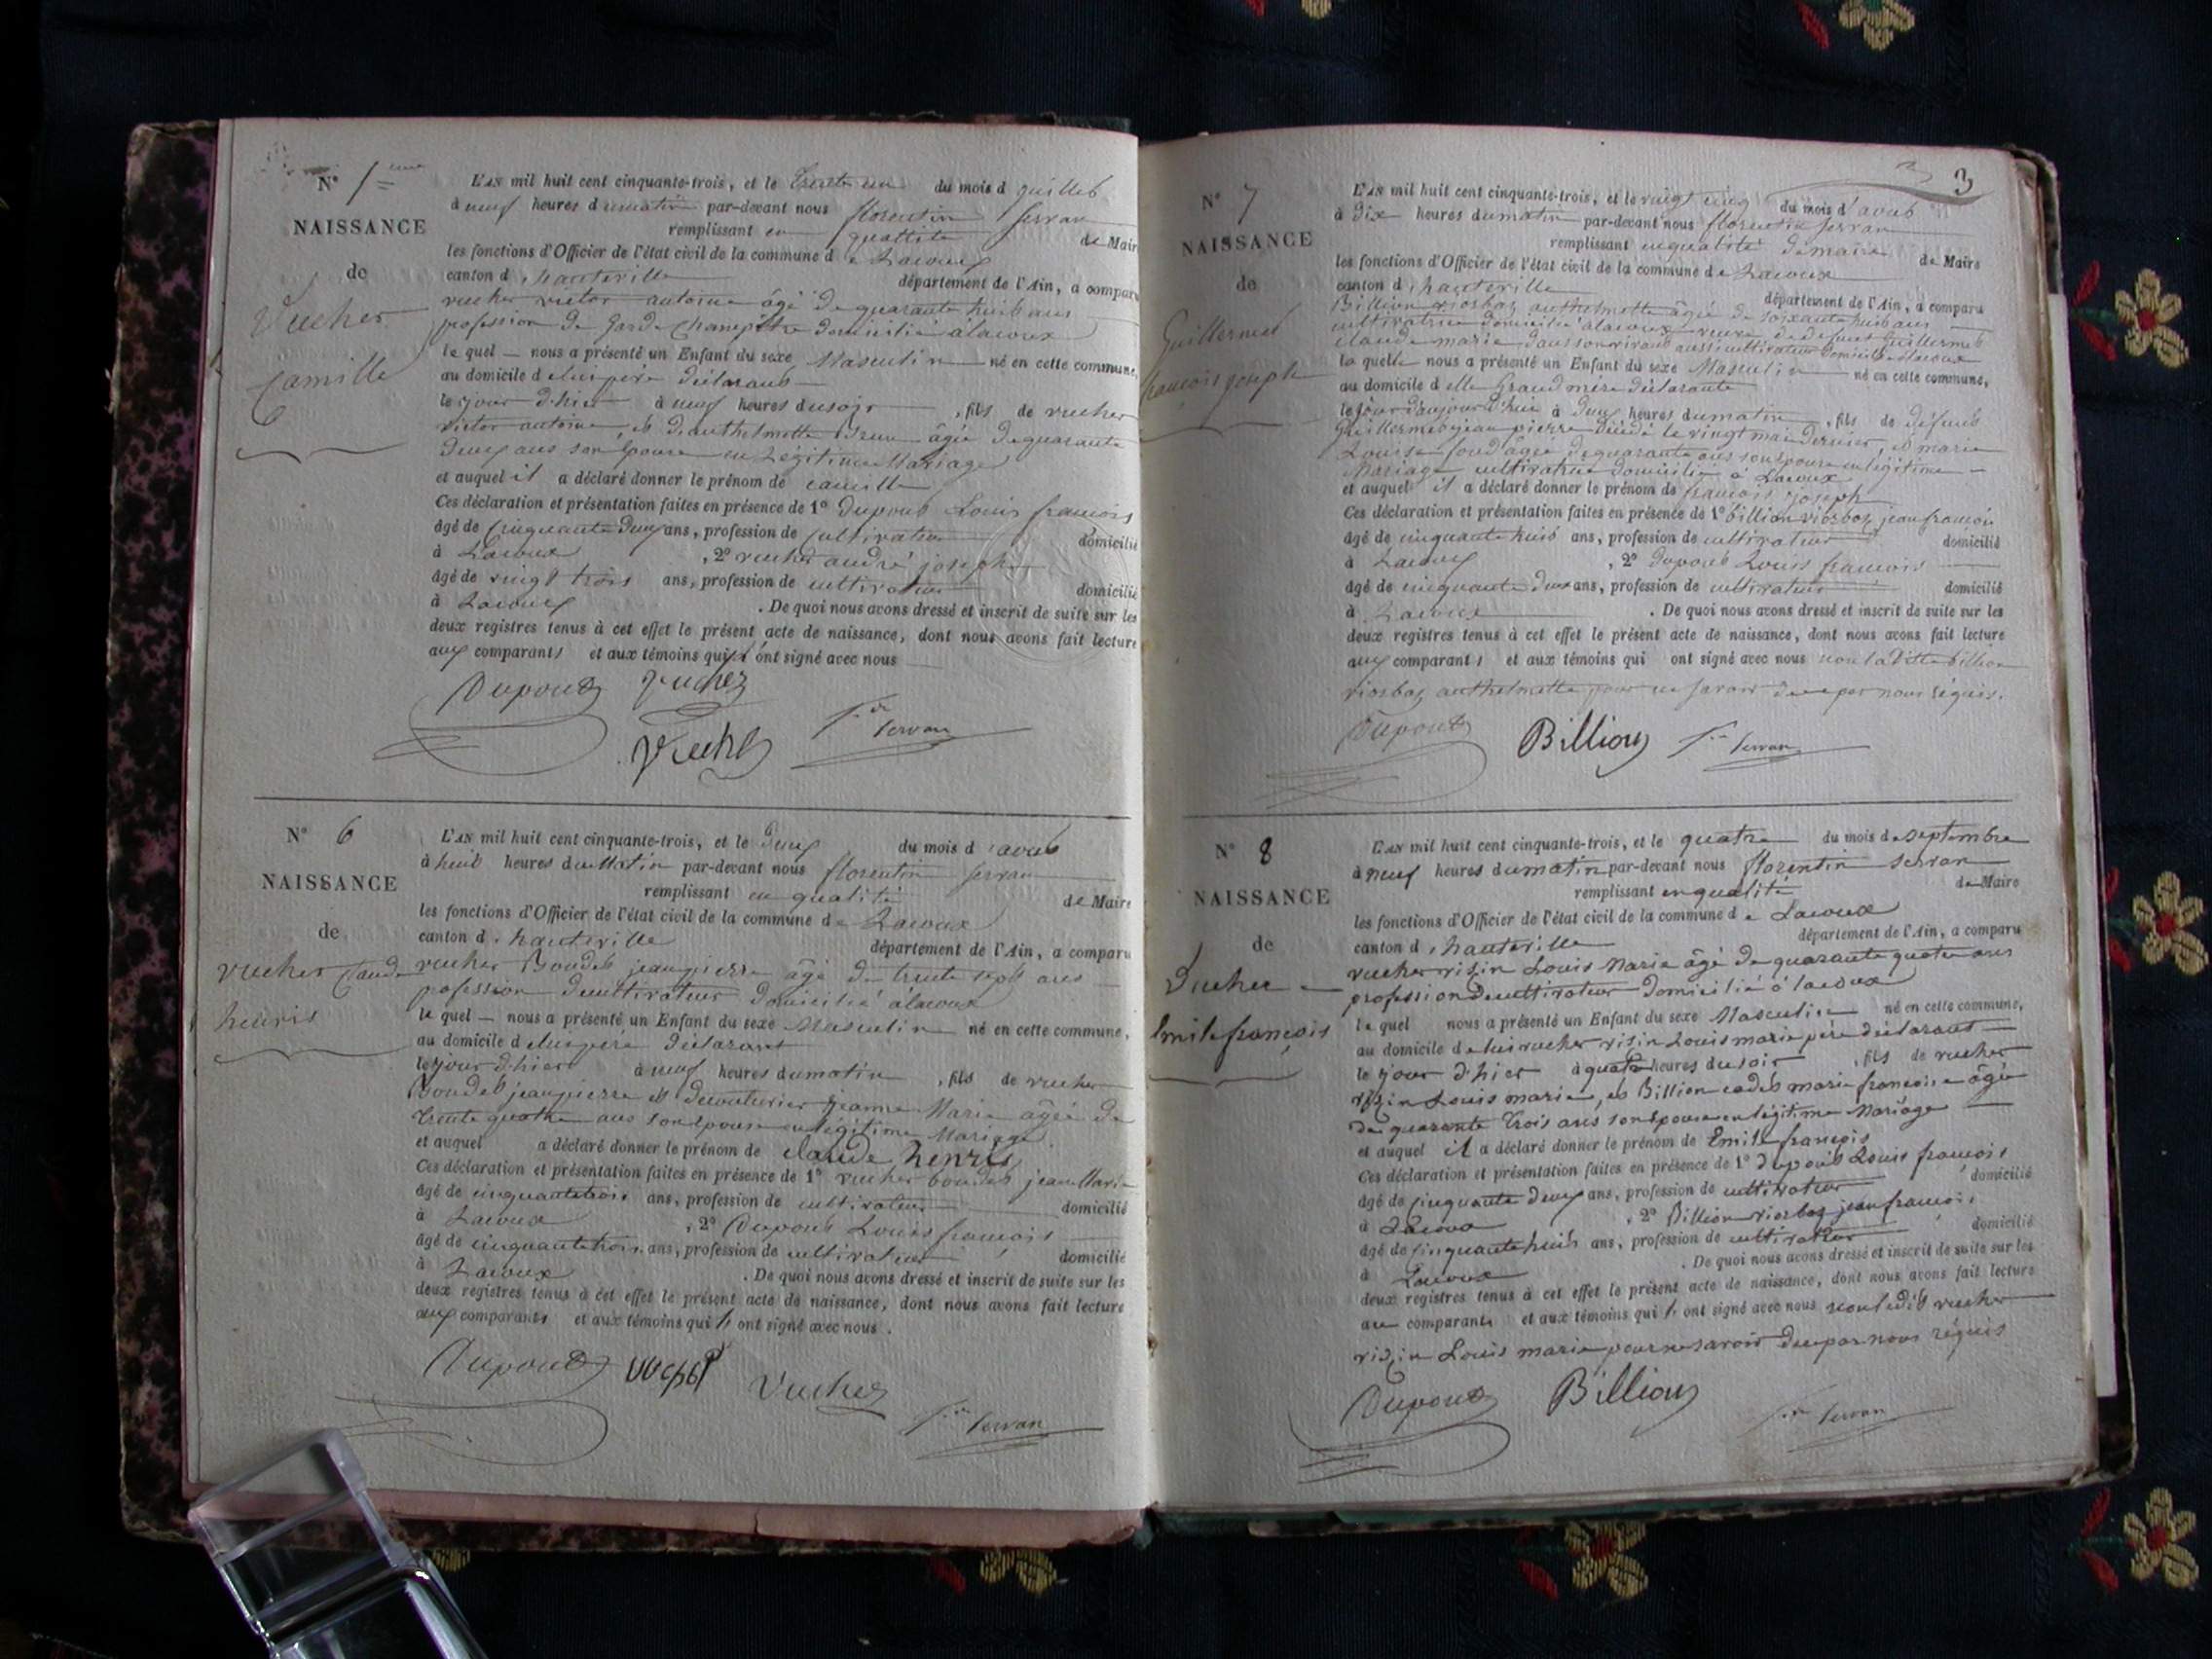 3
N° 5eme
NAISSANCE
de
Vucher
Camille
L'AN mil huit cent cinquante-trois, et le trente un du mois d juillet
à neuf heures du matin par-devant nous florentin servan
remplissant en quallité de Maire
les fonctions d'Officier de l'état civil de la commune de Lacoux
canton d'hauteville département de l'Ain, a comparu
vucher victor antoine âgé de quarante huit ans
profession de garde champêtre domicilié à lacoux
le quel nous a présenté un Enfant du sexe Masculin né en cette commune,
au domicile de lui père déclarant
le jour d'hier à neuf heures du soir, fils de vucher
victor antoine, et d'anthelmette Brun âgée de quarante
deux ans son épouse en Legitime Mariage
et auquel il a déclaré donner le prénom de camille
Ces déclaration et présentation faites en présence de 1° Dupont Louis francois
âgé de cinquante deux ans, profession de cultivateur domicilié
à Lacoux, 2° vucher andré joseph
âgé de vingt trois ans, profession de cultivateur domicilié
à Lacoux. De quoi nous avons dressé et inscrit de suite sur les
deux registres tenus à cet effet le présent acte de naissance, dont nous avons fait lecture
aux comparants et aux témoins qui ont signé avec nous
Dupont Vucher
Vucher servan
N° 6
NAISSANCE
de
vucher Claude
henris
L'AN mil huit cent cinquante-trois, et le deux du mois d'aout
à huit heures du Matin par-devant nous florentin servan
remplissant en qualité de Maire
les fonctions d'Officier de l'état civil de la commune de Lacoux
canton d'hauteville département de l'Ain, a comparu
vucher Boudet jean pierre âgé de trente sept ans
profession de cultivateur domicilié à lacoux
le quel nous a présenté un Enfant du sexe Masculin né en cette commune,
au domicile de lui père déclarant
le jour d'hier à neuf heures du matin, fils de vucher
Boudet jean pierre et decouturier jeanne Marie âgée de
trente quatre ans son épouse en legitime Mariage
et auquel a déclaré donner le prénom de claude henris
Ces déclaration et présentation faites en présence de 1° vucher boudet jean Marie
âgé de cinquante trois ans, profession de cultivateur domicilié
à Lacoux, 2° Dupont Louis francois
âgé de cinquante trois ans, profession de cultivateur domicilié
à Lacoux. De quoi nous avons dressé et inscrit de suite sur les
deux registres tenus à cet effet le présent acte de naissance, dont nous avons fait lecture
aux comparants et aux témoins qui ont signé avec nous.
Dupont Vucher
servan
N° 7
NAISSANCE
de
Guillermet
francois joseph
L'AN mil huit cent cinquante-trois, et le vingt cinq du mois d'aout
à dix heures du matin par-devant nous florentin servan
remplissant en qualité de maire de Maire
les fonctions d'Officier de l'état civil de la commune de Lacoux
canton d'hauteville département de l'Ain, a comparu
Billion riosbaz anthelmette âgée de soixante huit ans
cultivatrice domiciliée à lacoux veuve de defunt Guillermet
claude marie dans son vivant aussi cultivateur domicilié à lacoux
la quelle nous a présenté un Enfant du sexe Masculin né en cette commune,
au domicile d'elle grand mère déclarante
le jour d'aujourd'hui à deux heures du matin, fils de defunt
guillermet jean pierre décédé le vingt mai dernier, et marie
Louise âgée de quarante ans son épouse en légitime
Mariage cultivatrice domiciliée à Lacoux
et auquel il a déclaré donner le prénom de francois joseph
Ces déclaration et présentation faites en présence de 1° billion riosbaz jean françois
âgé de cinquante huit ans, profession de cultivateur domicilié
à Lacoux, 2° Dupont Louis francois
âgé de cinquante deux ans, profession de cultivateur domicilié
à Lacoux. De quoi nous avons dressé et inscrit de suite sur les
deux registres tenus à cet effet le présent acte de naissance, dont nous avons fait lecture
aux comparants et aux témoins qui ont signé avec nous non la ditte billion
riosbaz anthelmette pour ne savoir de ce par nous réquis.
Dupont Billion servan
N° 8
NAISSANCE
de
Vucher
Emile françois
L'AN mil huit cent cinquante-trois, et le quatre du mois de septembre
à neuf heures du matin par-devant nous florentin servan
remplissant en qualité de Maire
les fonctions d'Officier de l'état civil de la commune de Lacoux
canton d'hauteville département de l'Ain, a comparu
vucher rizin Louis Marie âgé de quarante quatre ans
profession de cultivateur domicilié à lacoux
le quel nous a présenté un Enfant du sexe Masculin né en cette commune,
au domicile de lui vucher rizin Louis marie père déclarant
le jour d'hier à quatre heures du soir, fils de vucher
rizin Louis marie, et Billion cadet marie francoise âgée
de quarante trois ans son épouse en légitime Mariage
et auquel il a déclaré donner le prénom de Emile françois
Ces déclaration et présentation faites en présence de 1° dupont Louis françois
âgé de cinquante deux ans, profession de cultivateur domicilié
à Lacoux, 2° Billion riosbaz jean francois
âgé de cinquante huit ans, profession de cultivateur domicilié
à Lacoux. De quoi nous avons dressé et inscrit de suite sur les
deux registres tenus à cet effet le présent acte de naissance, dont nous avons fait lecture
au comparant et aux témoins qui ont signé avec nous non ledit vucher
rizin Louis marie pour ne savoir de ce par nous réquis
Dupont Billion servan